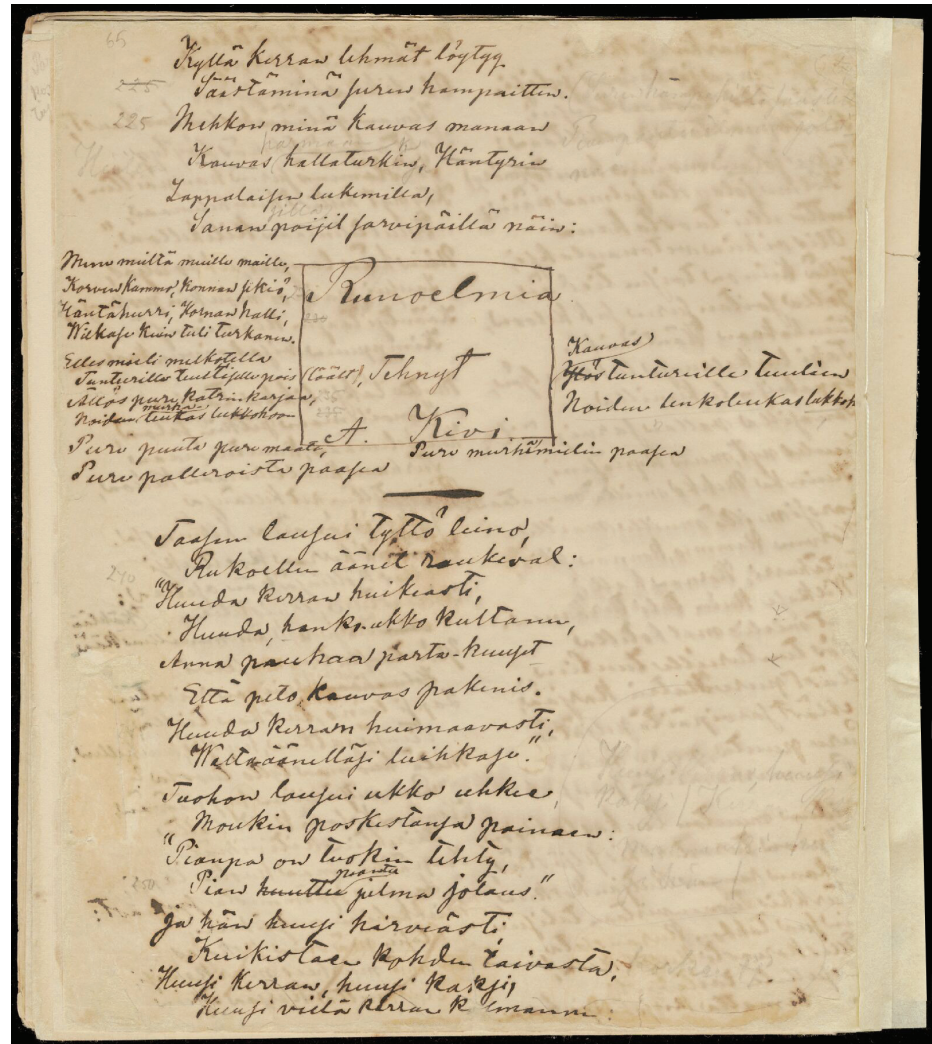 65
Kyllä kerran lehmät löytyy
225
Säästäminä suren hampaitten.
225 Mutkon minä kauvas manaan
Kauvas hallaturkin, Häntyrin
Lappalaisen lukemilla,
Sanan poijil sarvipäillä näin:
Mene mieltä muille maille,
Korven kammo, konnan sikiö,
Häntähurri, Hornan halli,
Wilkase kuin tuli turkanen.
Elles mieli melkotella
Tunturille tuulisille pois (täält),
Allös pure Katrin karjaa,
Noiden murha-leukas lukkohon
Pure puuta pure maata,
Pure palleroista paasea
Runoelmia
Tehnyt
A. Kivi
Kauvas
Ylös tuntureille tuulien
Noiden lenkoleukas lukkoh
Pure murhëmielin paasea
Taasen lausui tyttö leino,
Rukoellen äänel raukeval:
"Huuda kerran huikeasti,
Huuda, hanko-ukko kultanen,
Anna pauhaa parta-kuuset
Että peto kauvas pakenis.
Huuda kerran huimaavasti,
Waltaäänelläsi luihkase."
Tuohon lausui ukko uhkee,
Moukin poskestansa painaen:
"Pianpa on tuokin tehty,
250
poastu
Pian huuttu julma jolaus."
Ja hän huusi hirveästi,
Kuikistaen kohden taivasta,
Huusi kerran, huusi kaksi,
Huusi vielä kerran kolmannen.